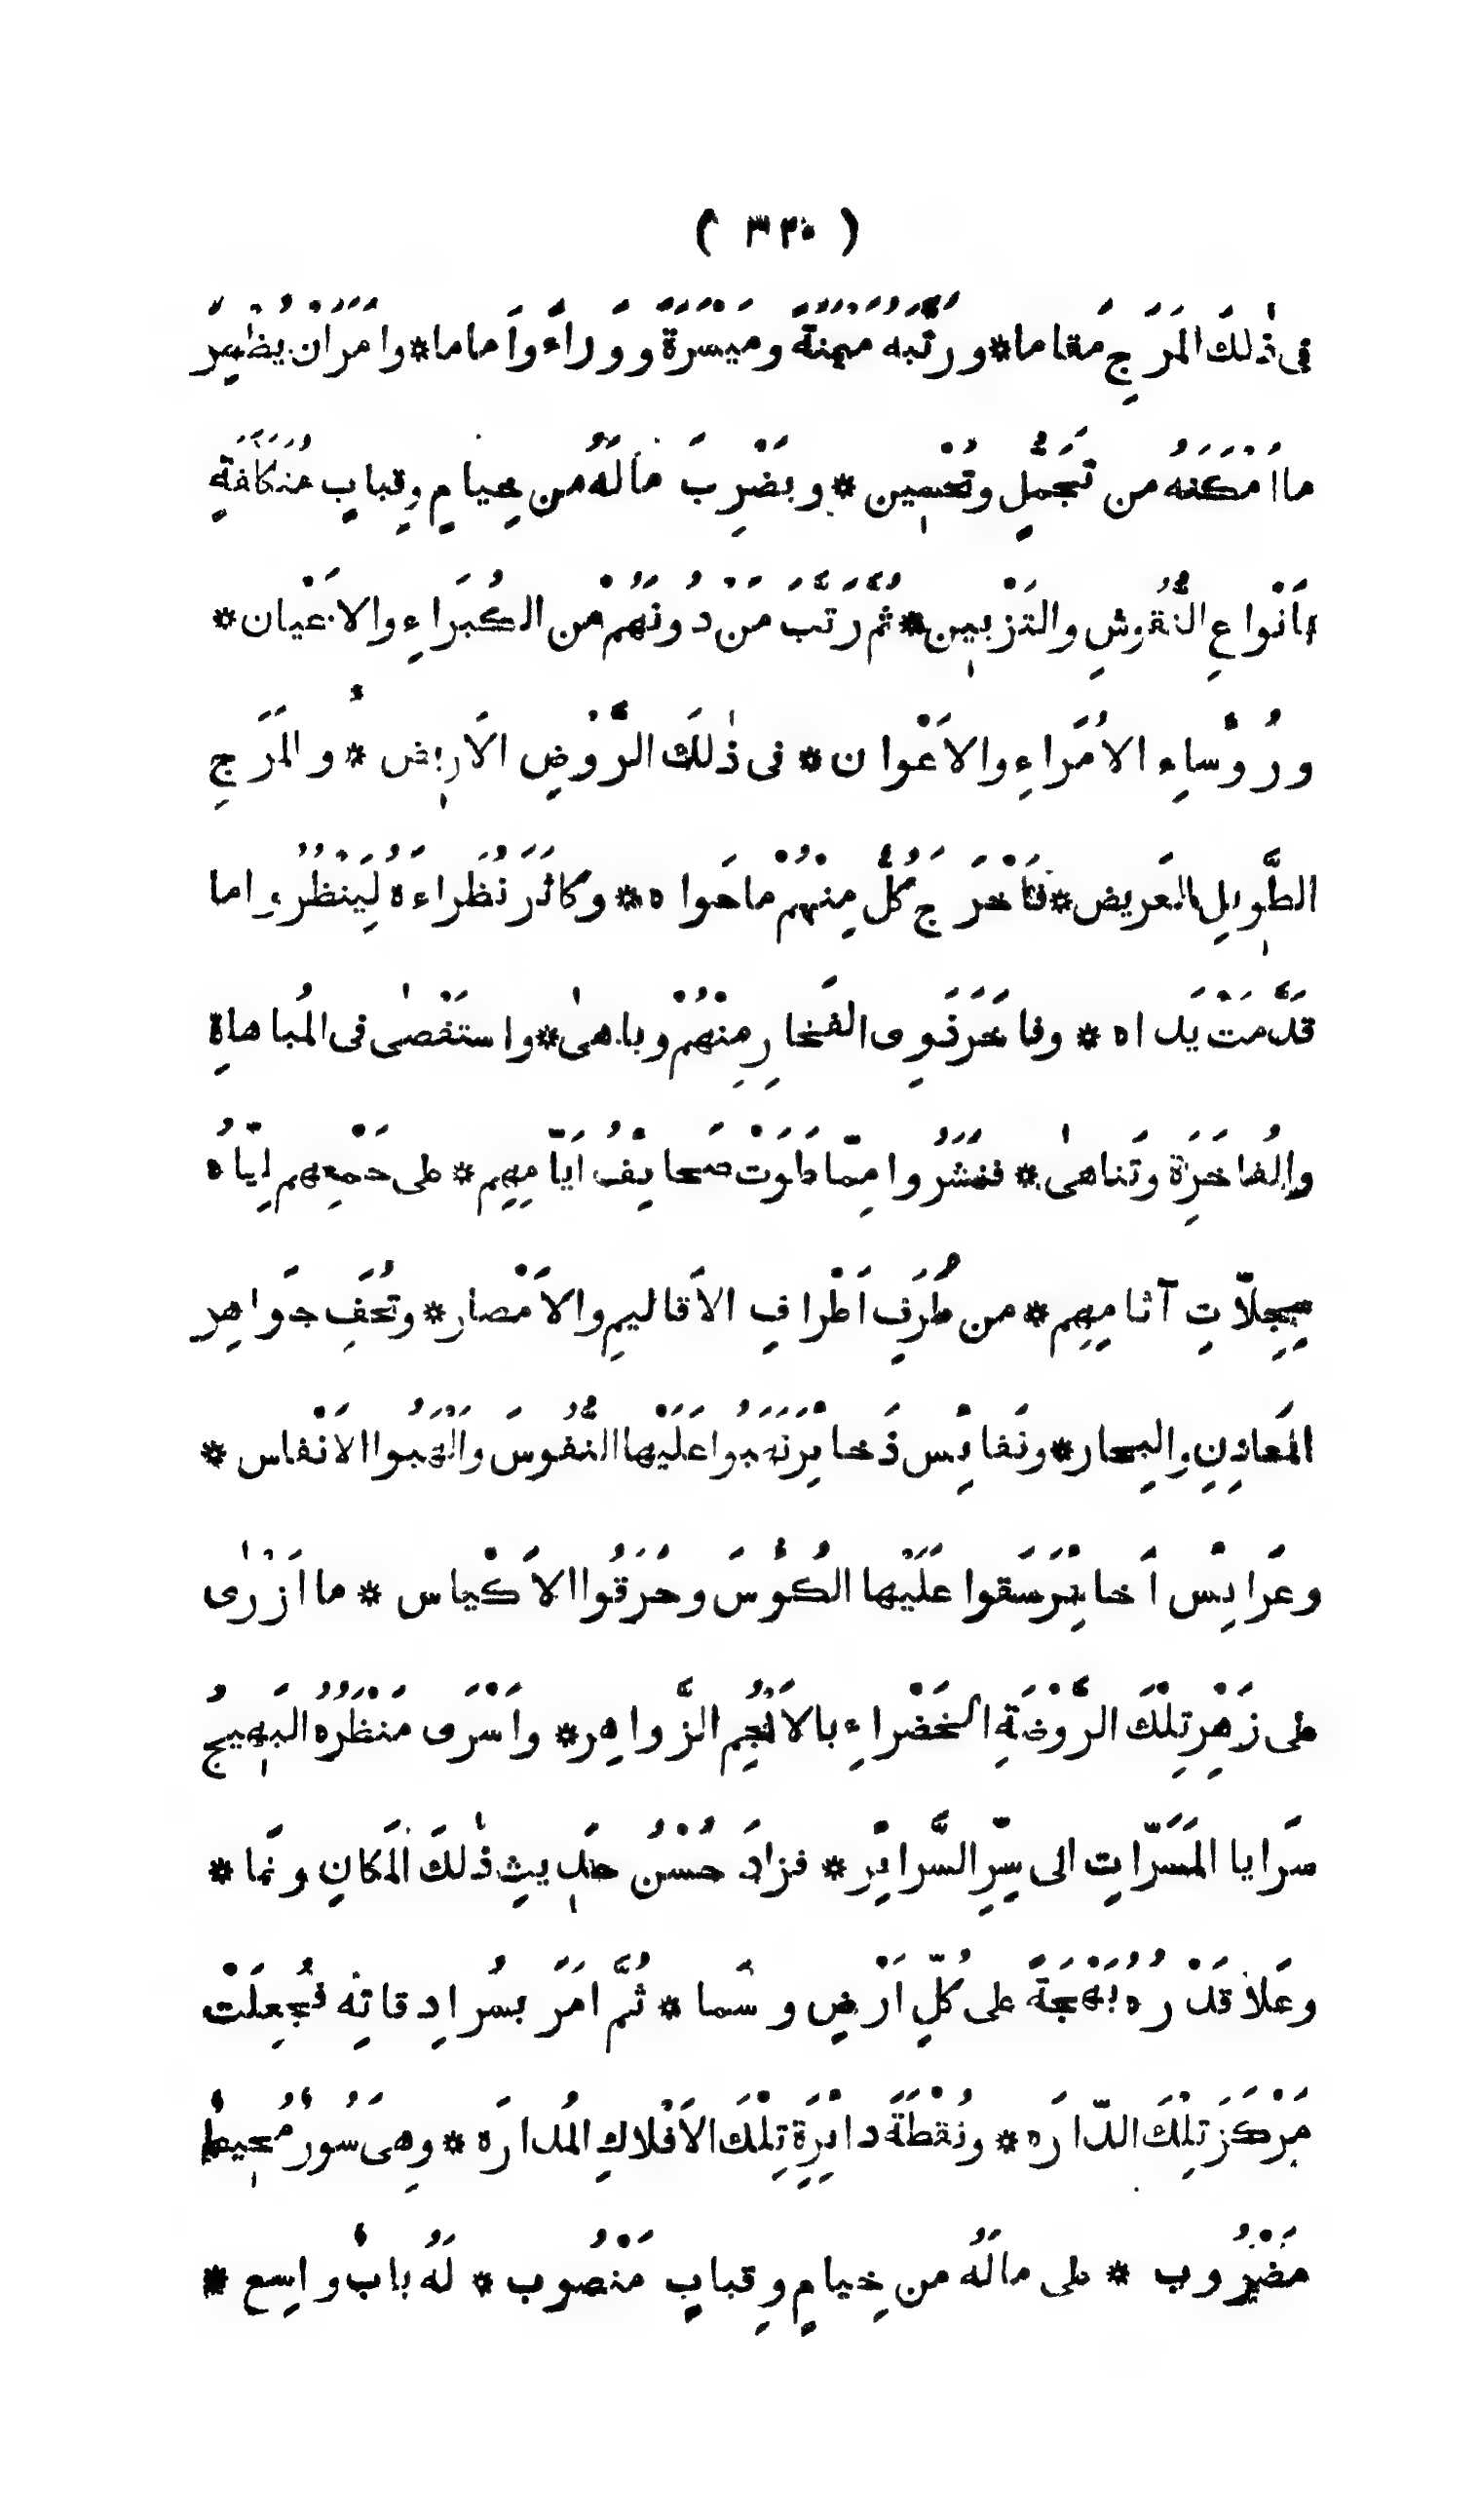 ( ٣٣٠ )
فى ذٰلكَ المَرَجِ مَقاما * ورَتَّبَهُ مَيْمَنَةً ومَيْسَرَةً ووَراءً واَماما * واَمَرَ اَنْ يُظْهِرَ
ما اَمْكَنَهُ من تَجَمُّلٍ وتَحْسِين * ويَضْرِبَ مالَهُ من خِيامٍ وقِبابٍ مُتَكاثِفَةٍ
باَنْواعِ النُّقُوشِ والتَزْيِين * ثُمَّ رَتَّبَ مَنْ دُونَهُمْ من الكُبَراءِ والاَعْيان *
ورُؤَساءِ الاُمَراءِ والاَعْوان * فى ذٰلكَ الرَّوْضِ الاَرِيض * والمَرَجِ
الطَّوِيلِ العَرِيض * فَاَخْرَجَ كُلٌّ مِنْهُمْ ما حَواه * وكاثَرَ نُظَراءَهُ لِيَنْظُرُوا ما
قَدَّمَتْ يَداه * وفاخَرَ ذَوِى الفَخارِ مِنْهُمْ وباهىٰ * واسْتَقْصىٰ فى المُباهاةِ
والمُفاخَرَةِ وتَناهىٰ * فنَشَرُوا مِمّا طَوَتْ صَحايِفُ اَيّامِهِم * على جَمْعِهِم اِيّاهُ
سِجِلّاتِ آثامِهِم * من طُرَفِ اَطْرافِ الاَقاليمِ والاَمْصار * وتُحَفِ جَواهِر
المَعادِنِ والبِحار * ونَفائِسِ ذَخائِرَ نَهَبُوا عَلَيْها النُّفُوسَ واَلْهَبُوا الاَنْفاس *
وعَرائِسِ اَخائِرَ سَقَوا عَلَيْها الكُؤُسَ وخَرَقُوا الاَكْياس * ما اَزْرٰى
على زَهْرِ تِلْكَ الرَّوْضَةِ الخَضْراءِ بالاَنْجُمِ الزَّواهِر * واَسْرَى مَنْظَرُهُ البَهِيجُ
سَرايا المَسَرّاتِ الى سِرِّ السَّرائِر * فزادَ حُسْنُ حَدِيثِ ذٰلكَ المَكانِ ونَما *
وعَلا قَدْرُهُ بَهْجَةً على كُلِّ اَرْضٍ وسَما * ثُمَّ اَمَرَ بسُرادِقاتِه فجُعِلَتْ
مَرْكَزَ تِلْكَ الدّارَه * ونُقْطَةَ دائِرَةِ تِلْكَ الاَفْلاكِ المُدارَه * وهِىَ سُورٌ مُحِيطٌ
مَضْرُوب * على مالَهُ من خِيامٍ وقِبابٍ مَنْصُوب * لَهُ بابٌ واسِع *